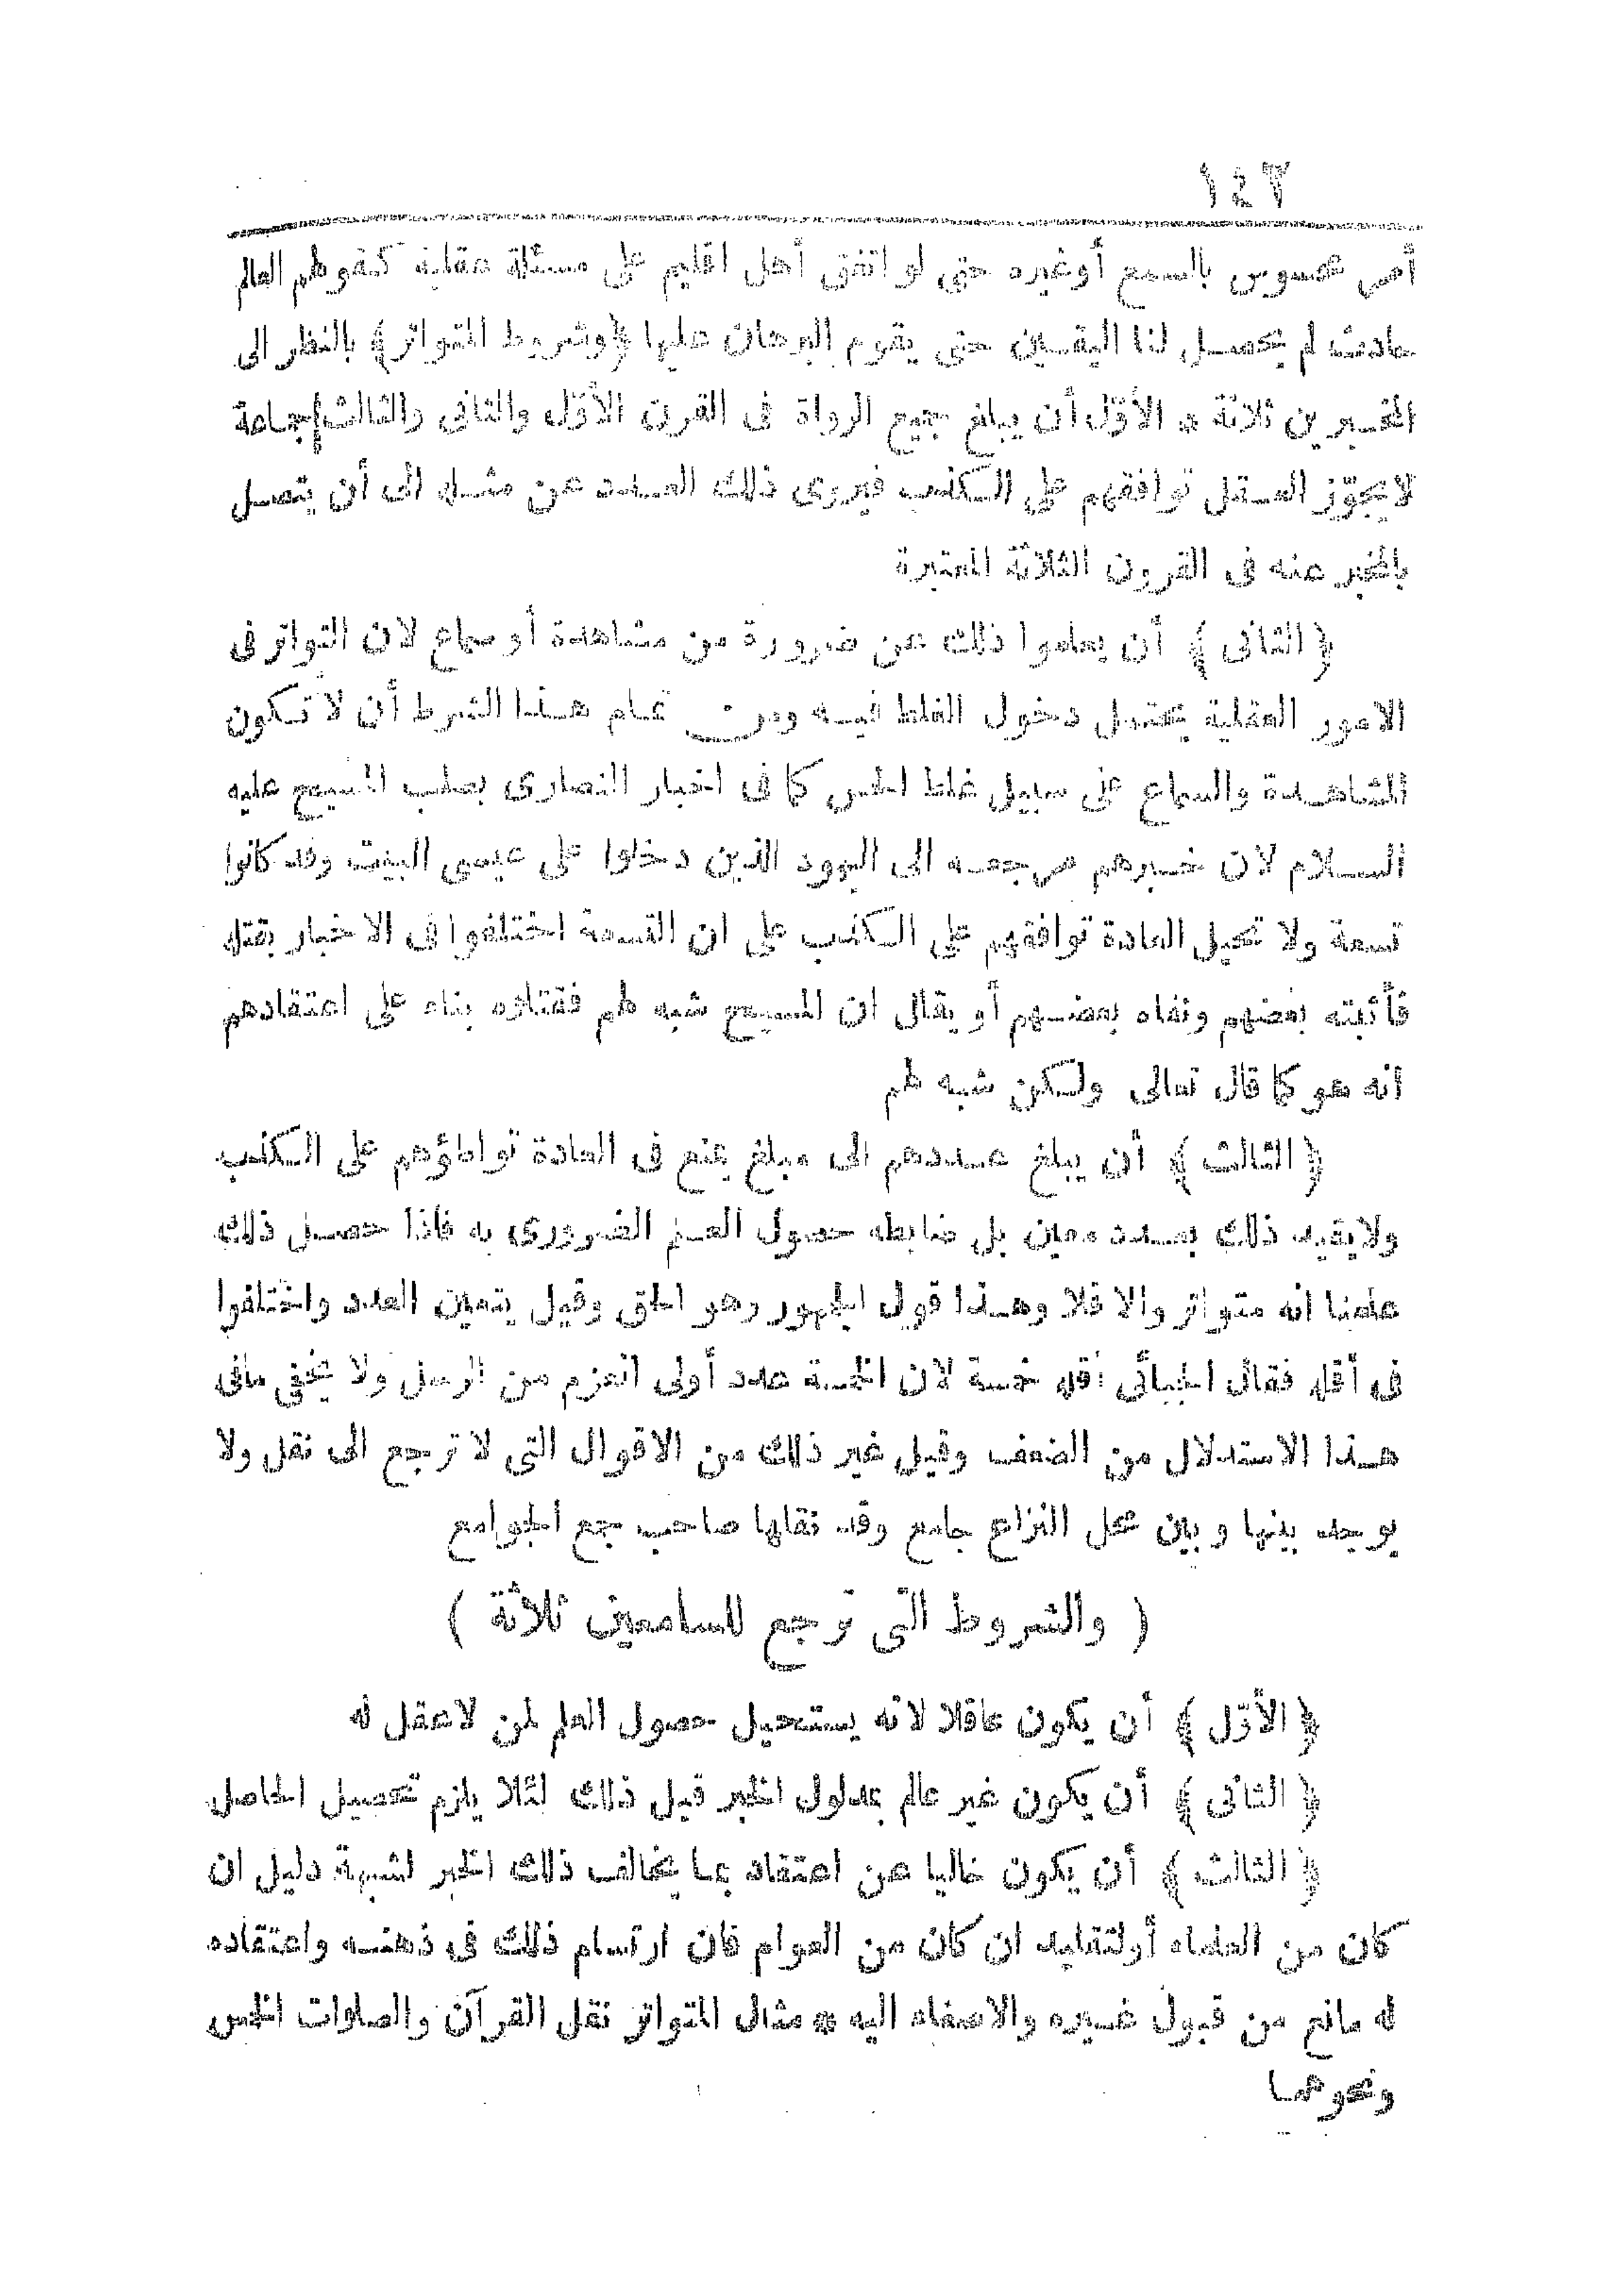 ١٤٣
أمر محسوس بالسمع أوغيره حتى لو اتفق أهل اقليم على مسئلة عقلية كقولهم العالم
حادث لم يحصل لنا اليقين حتى يقوم البرهان عليها ﴿وشروط المتواتر﴾ بالنظر الى
المخبرين ثلاثة * الأوّل أن يبلغ جميع الرواة فى القرن الأوّل والثانى والثالث جماعة
لايجوّز العقل توافقهم على الكذب فيروى ذلك العدد عن مثله الى أن يتصل
بالمخبر عنه فى القرون الثلاثة المعتبرة
﴿الثانى﴾ أن يعلموا ذلك عن ضرورة من مشاهدة أو سماع لان التواتر فى
الامور العقلية يحتمل دخول الغلط فيه ومن تمام هذا الشرط أن لا تكون
المشاهدة والسماع على سبيل غلط الحس كما فى اخبار النصارى بصلب المسيح عليه
السلام لان خبرهم مرجعه الى اليهود الذين دخلوا على عيسى البيت وقد كانوا
تسعة ولا تحيل العادة توافقهم على الكذب على ان التسعة اختلفوا فى الاخبار بقتله
فأثبته بعضهم ونفاه بعضهم أو يقال ان المسيح شبه لهم فقتلوه بناء على اعتقادهم
انه هو كما قال تعالى ولكن شبه لهم
﴿الثالث﴾ أن يبلغ عددهم الى مبلغ يمنع فى العادة تواطؤهم على الكذب
ولايقيد ذلك بعدد معين بل ضابطه حصول العلم الضرورى به فاذا حصل ذلك
علمنا انه متواتر والا فلا وهذا قول الجمهور وهو الحق وقيل يتعين العدد واختلفوا
فى أقله فقال الجبائى أقله خمسة لان الخمسة عدد أولى العزم من الرسل ولا يخفى مافى
هذا الاستدلال من الضعف وقيل غير ذلك من الاقوال التى لا ترجع الى نقل ولا
يوجد بينها وبين محل النزاع جامع وقد نقلها صاحب جمع الجوامع
( والشروط التى ترجع للسامعين ثلاثة )
﴿الأوّل﴾ أن يكون عاقلا لانه يستحيل حصول العلم لمن لاعقل له
﴿الثانى﴾ أن يكون غير عالم بمدلول الخبر قبل ذلك لئلا يلزم تحصيل الحاصل
﴿الثالث﴾ أن يكون خاليا عن اعتقاد بما يخالف ذلك الخبر لشبهة دليل ان
كان من العلماء أولتقليد ان كان من العوام فان ارتسام ذلك فى ذهنه واعتقاده
له مانع من قبول غيره والاصغاء اليه * مثال المتواتر نقل القرآن والصلوات الخمس
ونحوهما